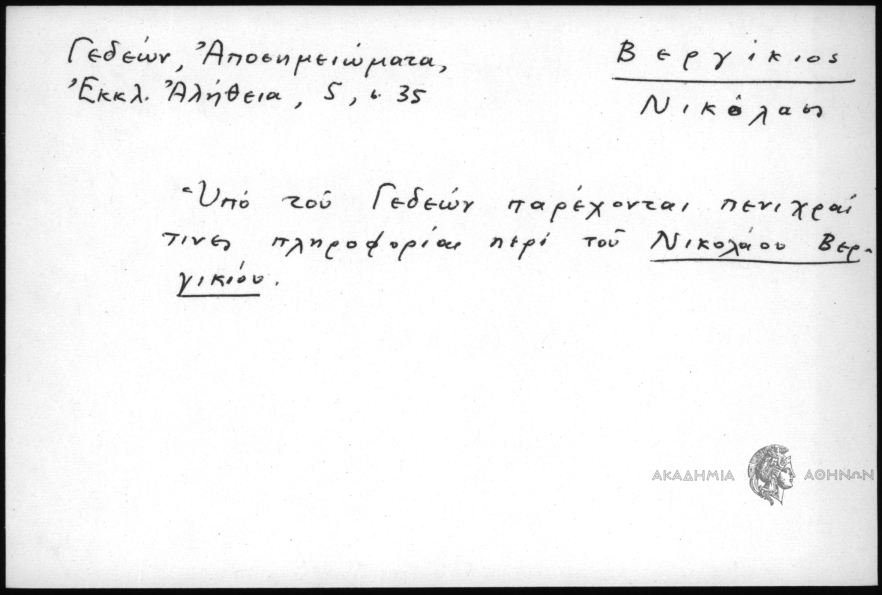 Γεδεών, Ἀποσημειώματα,
Ἐκκλ. Ἀλήθεια, 5, σ. 35
Βεργίκιος
Νικόλαος
Ὑπό τοῦ Γεδεών παρέχονται πενιχραί
τινες πληροφορίαι περί τοῦ Νικολάου Βερ-
γικίου.
ΑΚΑΔΗΜΙΑ ΑΘΗΝΩΝ